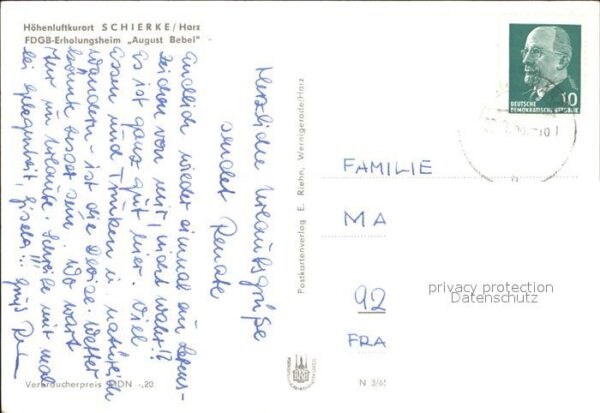 Höhenluftkurort SCHIERKE/Harz
FDGB-Erholungsheim „August Bebel"
Herzliche Urlaubsgrüße
sendet Renate
Endlich wieder einmal ein Lebens-
zeichen von mir, nicht wahr!?
Es ist ganz gut hier. Viel
Essen und Trinken u. natürlich
Wandern - ist die Devise. Wetter
könnte besser sein. Wo warst
im Urlaube. Schreibe mir mal
bei Gelegenheit, Gisela!!! Gruß
Verbraucherpreis MDN -,20
Postkartenverlag E. Riehn, Wernigerode/Harz
N 3/65
10
DEUTSCHE
DEMOKRATISCHE REPUBLIK
FAMILIE
MA
92
FRA
privacy protection
Datenschutz